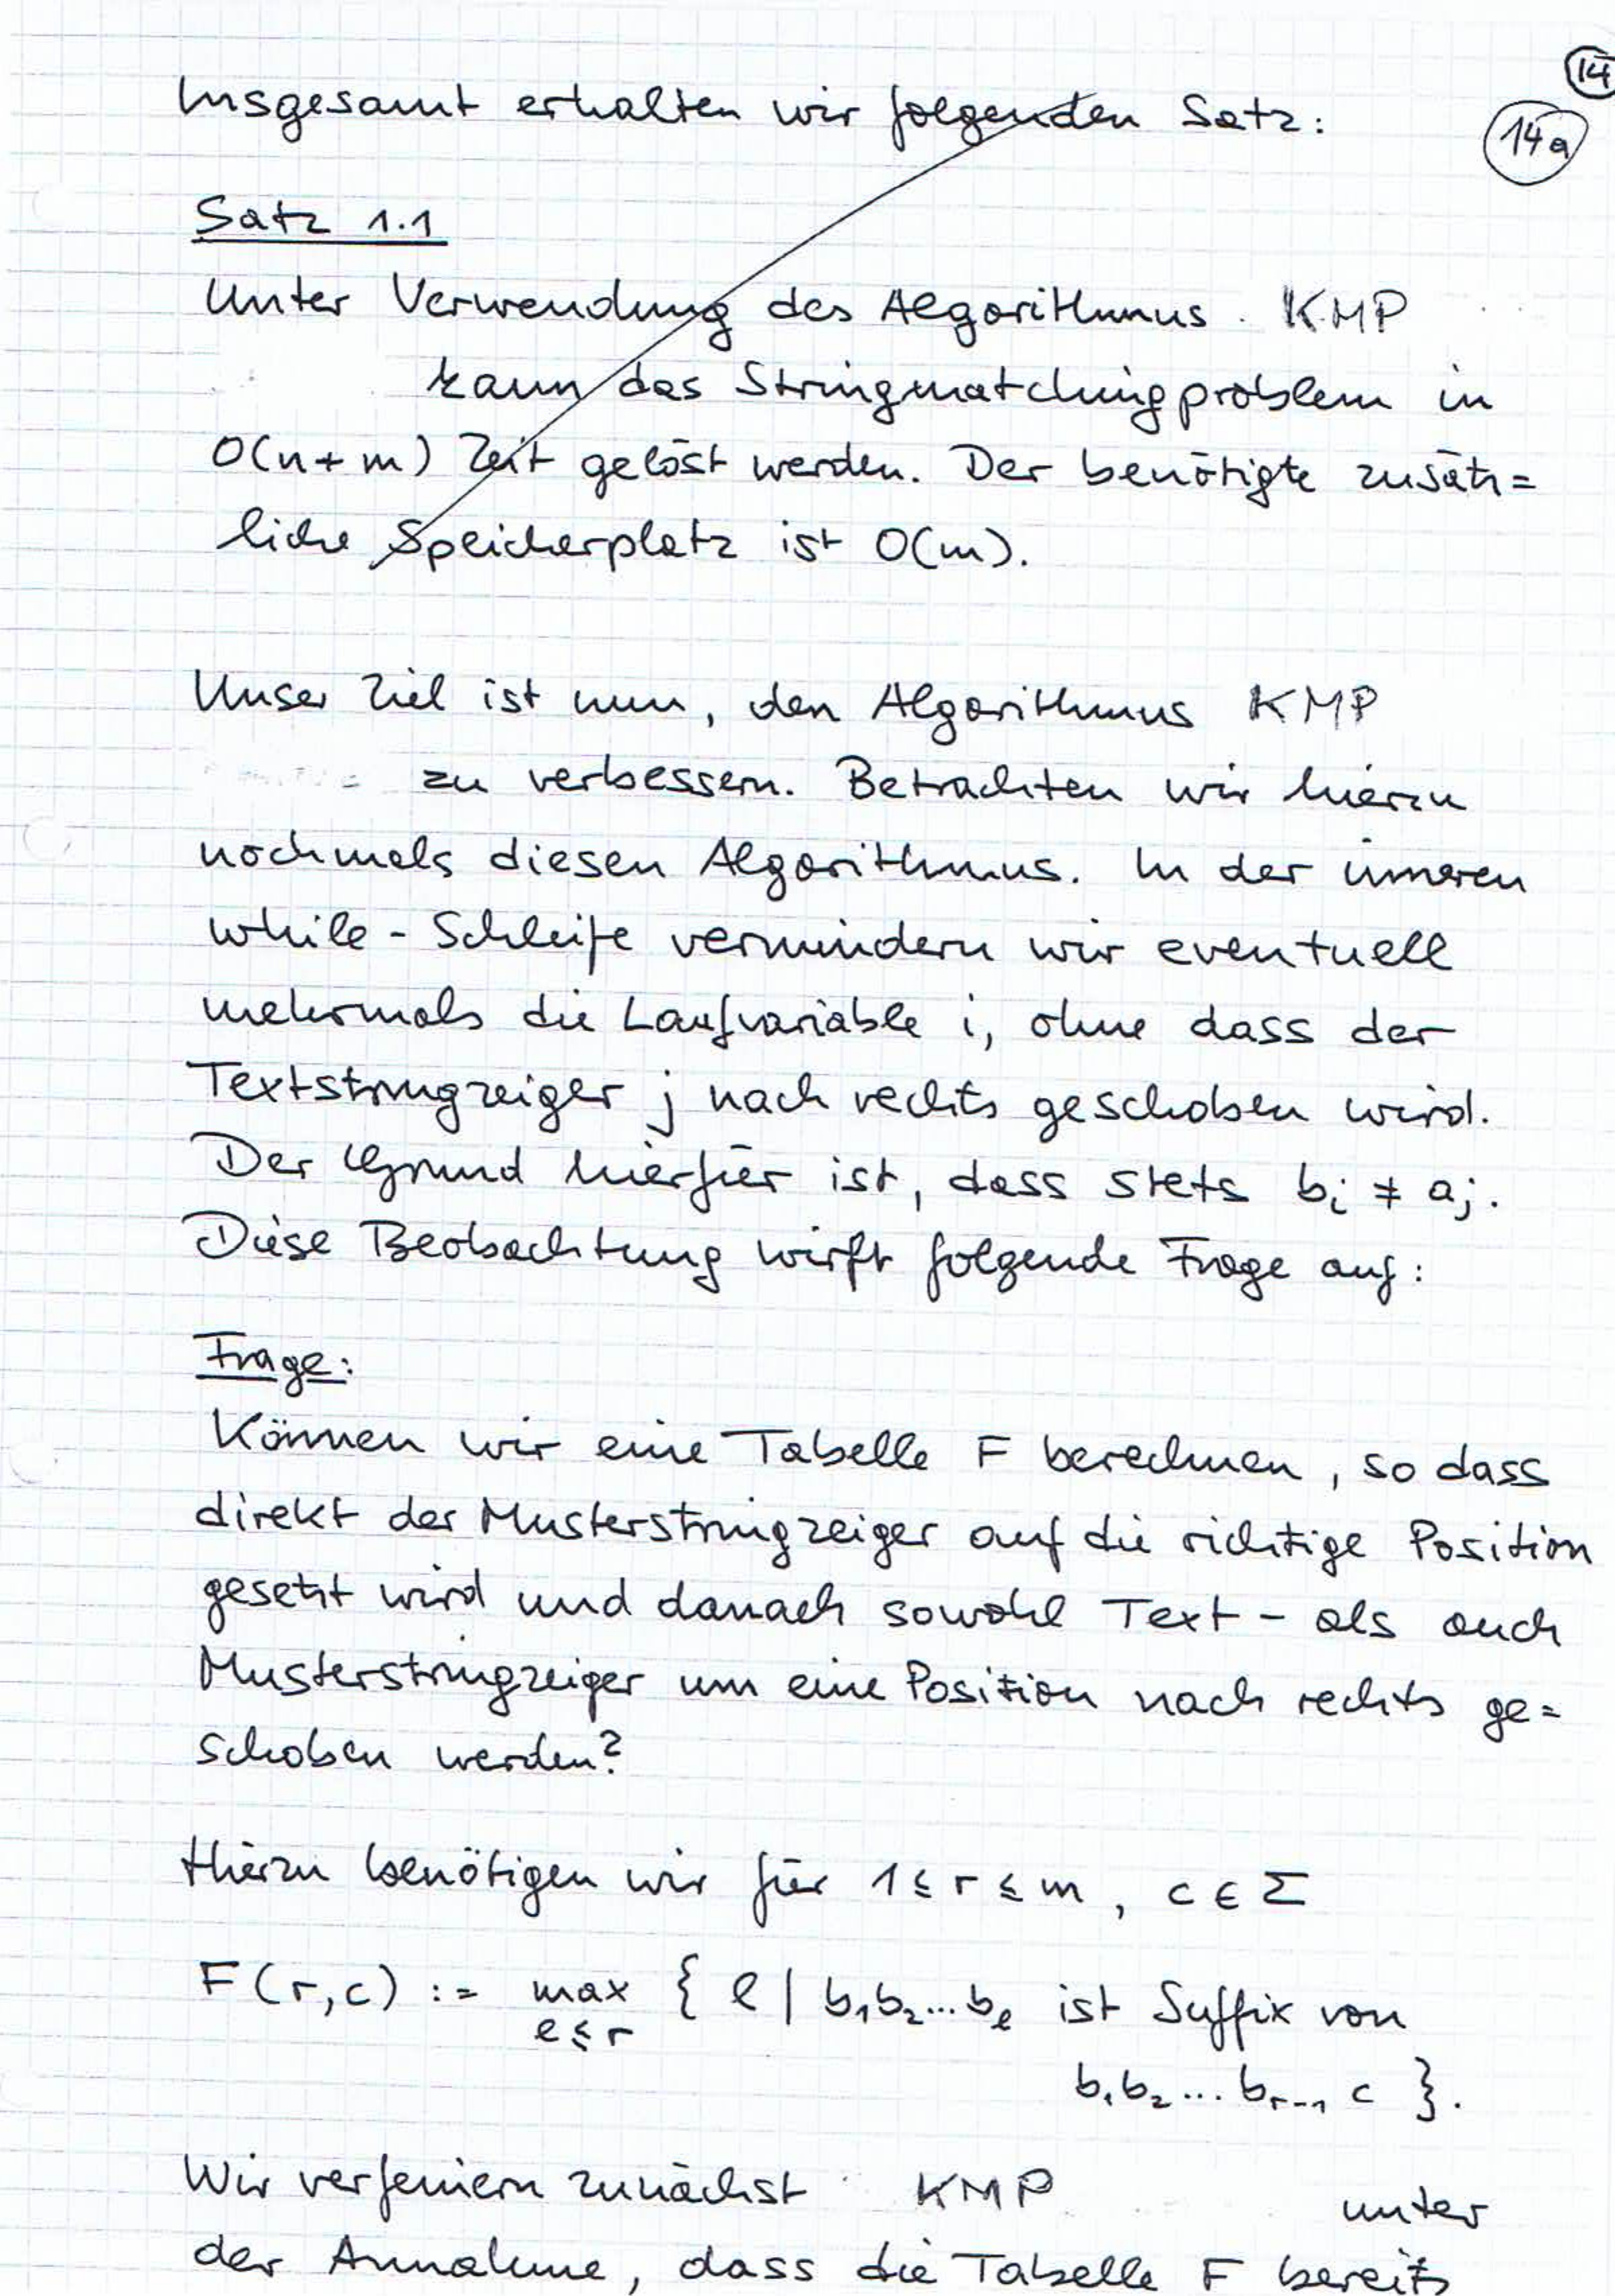 14
Insgesamt erhalten wir folgenden Satz:
14a
Satz 1.1
Unter Verwendung des Algorithmus KMP
kann das Stringmatchingproblem in
O(n+m) Zeit gelöst werden. Der benötigte zusätz=
liche Speicherplatz ist O(m).
Unser Ziel ist nun, den Algorithmus KMP
zu verbessern. Betrachten wir hierzu
nochmals diesen Algorithmus. In der inneren
while-Schleife vermindern wir eventuell
mehrmals die Laufvariable i, ohne dass der
Textstringzeiger j nach rechts geschoben wird.
Der Grund hierfür ist, dass stets bᵢ ≠ aⱼ.
Diese Beobachtung wirft folgende Frage auf:
Frage:
Können wir eine Tabelle F berechnen, so dass
direkt der Musterstringzeiger auf die richtige Position
gesetzt wird und danach sowohl Text- als auch
Musterstringzeiger um eine Position nach rechts ge=
schoben werden?
Hierzu benötigen wir für 1 ≤ r ≤ m, c ∈ Σ
F(r,c) := max { l | b₁b₂...bₗ ist Suffix von
l ≤ r
b₁b₂...bᵣ₋₁ c }.
Wir verfeinern zunächst KMP unter
der Annahme, dass die Tabelle F bereits